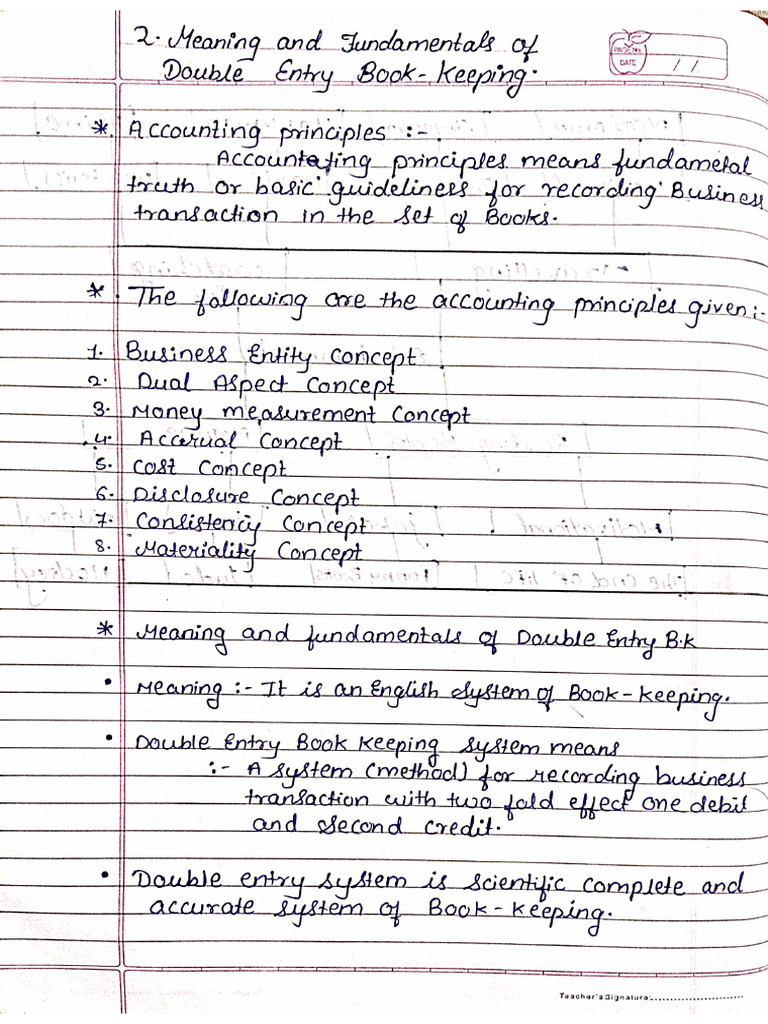 2. Meaning and Fundamentals of
Double Entry Book-Keeping.
PAGE No.
DATE / /
* Accounting principles :-
Accountating principles means fundametal
truth or basic guideliness for recording Business
transaction in the set of Books.
* The following are the accounting principles given:-
1. Business Entity Concept
2. Dual Aspect Concept
3. Money measurement Concept
4. Accrual Concept
5. Cost Concept
6. Disclosure Concept
7. Consistency Concept
8. Materiality Concept
* Meaning and fundamentals of Double Entry B.K
• Meaning :- It is an English system of Book-keeping.
• Double Entry Book Keeping system means
:- A system (method) for recording business
transaction with two fold effect one debit
and second credit.
• Double entry system is scientific complete and
accurate system of Book-keeping.
Teacher's Signature: